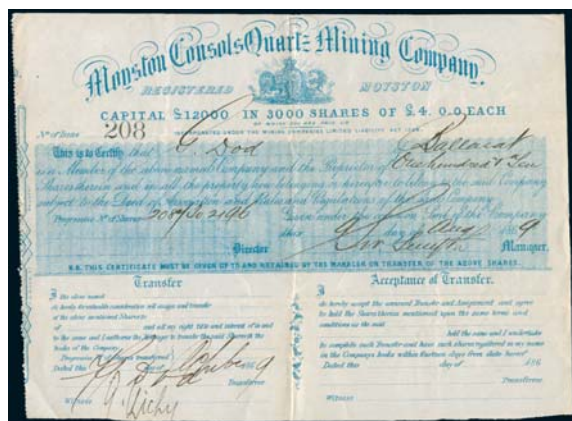 Moyston Consols Quartz Mining Company.
REGISTERED MOYSTON
CAPITAL £12000 IN 3000 SHARES OF £4. 0.0 EACH
INCORPORATED UNDER THE MINING COMPANIES LIMITED LIABILITY ACT
No of Scrip 208
This is to Certify that G. Dod Ballarat
is a Member of the above named Company and the Proprietor of One hundred & Ten
Shares therein and in all the property now belonging or hereafter to belong to the said Company
subject to the Deed of Association and Rules and Regulations of the said Company.
Progressive No of Shares 2087 to 2196 Given under the Common Seal of the Company
this 9 day of Aug 1869
Director Manager.
N.B. THIS CERTIFICATE MUST BE GIVEN UP TO AND RETAINED BY THE MANAGER ON TRANSFER OF THE ABOVE SHARES.
Transfer
I the above named
do hereby for valuable consideration sell assign and transfer
of the above mentioned Shares to
of and all my right title and interest of in and
to the same and I authorize the Manager to transfer the said Shares in the
books of the Company
Progressive Nos transferred
Dated this 1869
G Dod Transferror
Witness
Acceptance of Transfer.
I
do hereby accept the annexed Transfer and Assignment and agree
to hold the Shares therein mentioned upon the same terms and
conditions as the said
held the same and I undertake
to complete such Transfer and have such shares registered in my name
in the Companys books within fourteen days from date hereof
Dated this day of 186
Transferee
Witness